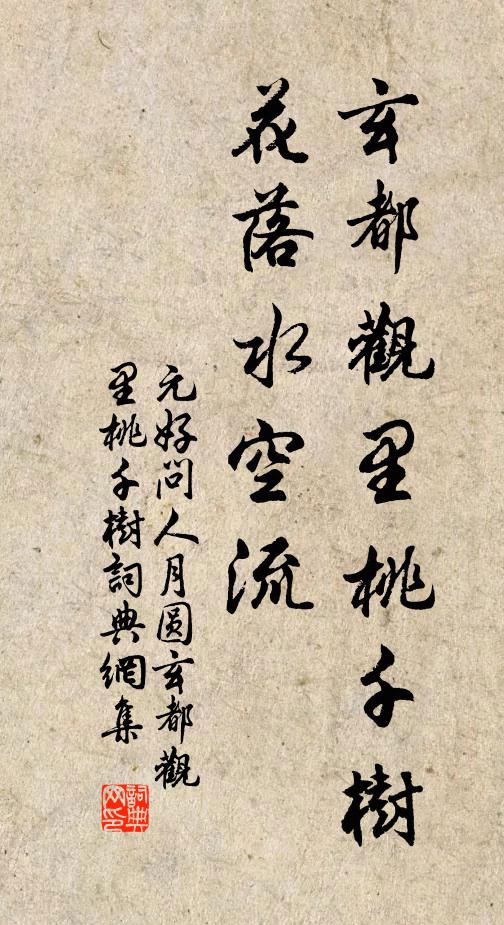 玄都觀里桃千樹
花落水空流
元好问人月圆玄都觀
里桃千樹詞典網集
詞典
网印